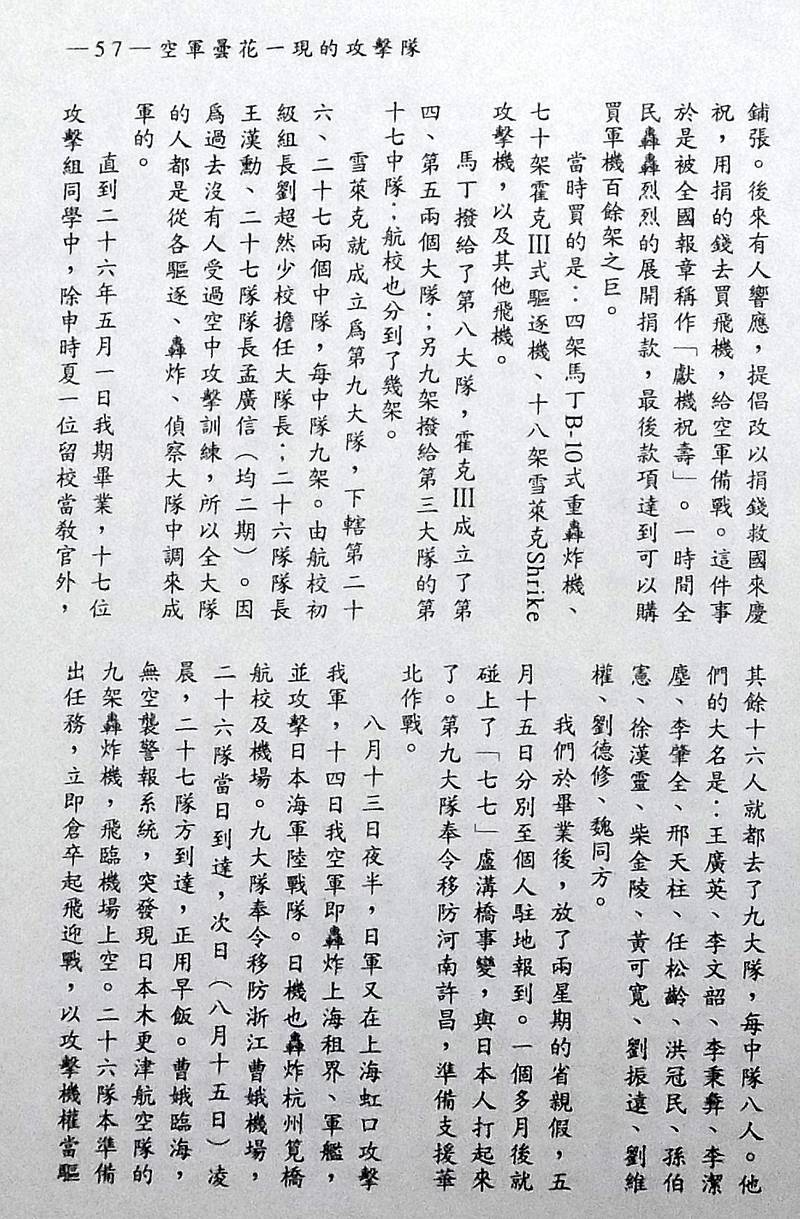 —57—空軍曇花一現的攻擊隊
鋪張。後來有人響應，提倡改以捐錢救國來慶
祝，用捐的錢去買飛機，給空軍備戰。這件事
於是被全國報章稱作「獻機祝壽」。一時間全
民轟轟烈烈的展開捐款，最後款項達到可以購
買軍機百餘架之巨。
當時買的是：四架馬丁B-10式重轟炸機、
七十架霍克III式驅逐機、十八架雪萊克Shrike
攻擊機，以及其他飛機。
馬丁撥給了第八大隊，霍克III成立了第
四、第五兩個大隊；另九架撥給第三大隊的第
十七中隊；航校也分到了幾架。
雪萊克就成立爲第九大隊，下轄第二十
六、二十七兩個中隊，每中隊九架。由航校初
級組長劉超然少校擔任大隊長；二十六隊隊長
王漢勳、二十七隊隊長孟廣信（均二期）。因
爲過去沒有人受過空中攻擊訓練，所以全大隊
的人都是從各驅逐、轟炸、偵察大隊中調來成
軍的。
直到二十六年五月一日我期畢業，十七位
攻擊組同學中，除申時夏一位留校當教官外，
其餘十六人就都去了九大隊，每中隊八人。他
們的大名是：王廣英、李文韶、李秉彝、李潔
塵、李肇全、邢天柱、任松齡、洪冠民、孫伯
憲、徐漢靈、柴金陵、黃可寬、劉振遠、劉維
權、劉德修、魏同方。
我們於畢業後，放了兩星期的省親假，五
月十五日分別至個人駐地報到。一個多月後就
碰上了「七七」盧溝橋事變，與日本人打起來
了。第九大隊奉令移防河南許昌，準備支援華
北作戰。
八月十三日夜半，日軍又在上海虹口攻擊
我軍，十四日我空軍即轟炸上海租界、軍艦，
並攻擊日本海軍陸戰隊。日機也轟炸杭州筧橋
航校及機場。九大隊奉令移防浙江曹娥機場，
二十六隊當日到達，次日（八月十五日）凌
晨，二十七隊方到達，正用早飯。曹娥臨海，
無空襲警報系統，突發現日本木更津航空隊的
九架轟炸機，飛臨機場上空。二十六隊本準備
出任務，立即倉卒起飛迎戰，以攻擊機權當驅